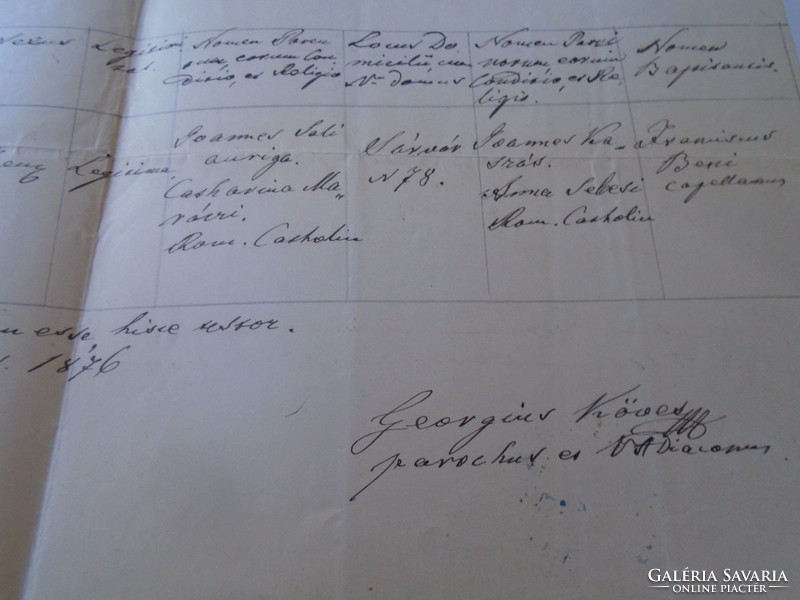 Sexus
Legitimi
tas.
Nomen Paren
tum, eorum Con
ditio, et Religio
Locus Do
micilii cum
Nro domus
Nomen Patri
norum eorum
Conditio, et Re
ligio.
Nomen
Baptisantis.
Legitima
Joannes
auriga.
Catharina Ma„
ráczi.
Rom. Catholici
Sárvár
N 78.
Joannes Ka„
szás.
Anna Sebesi
Rom. Catholici
Franciscus
Beni
capellanus
esse, hisce testor.
1876
Georgius Köves
parochus et V A Diaconus
GALÉRIA SAVARIA
ONLINE PIACTÉR